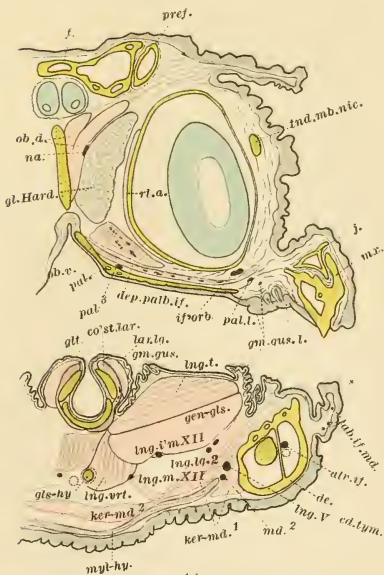 f.
pref.
tnd.mb.nic.
ob.d.
na.
gl.Hard.
rt.a.
j.
mx.
ob.v.
pal.
pal³
drp.palb.if.
if'orb.
pal.l.
gm.gus.l.
glt.
co'st.lar.
lar.lg.
gm.gus.
lng.t.
gen-gls.
lab.if.md.
lng.i'm XII
lng.lg.2
gls-hy
lng.vrt.
lng.m.XII
atr.if.
de.
cd.tym.
lng.V
ker-md²
ker-md.¹
md.²
myl-hy.